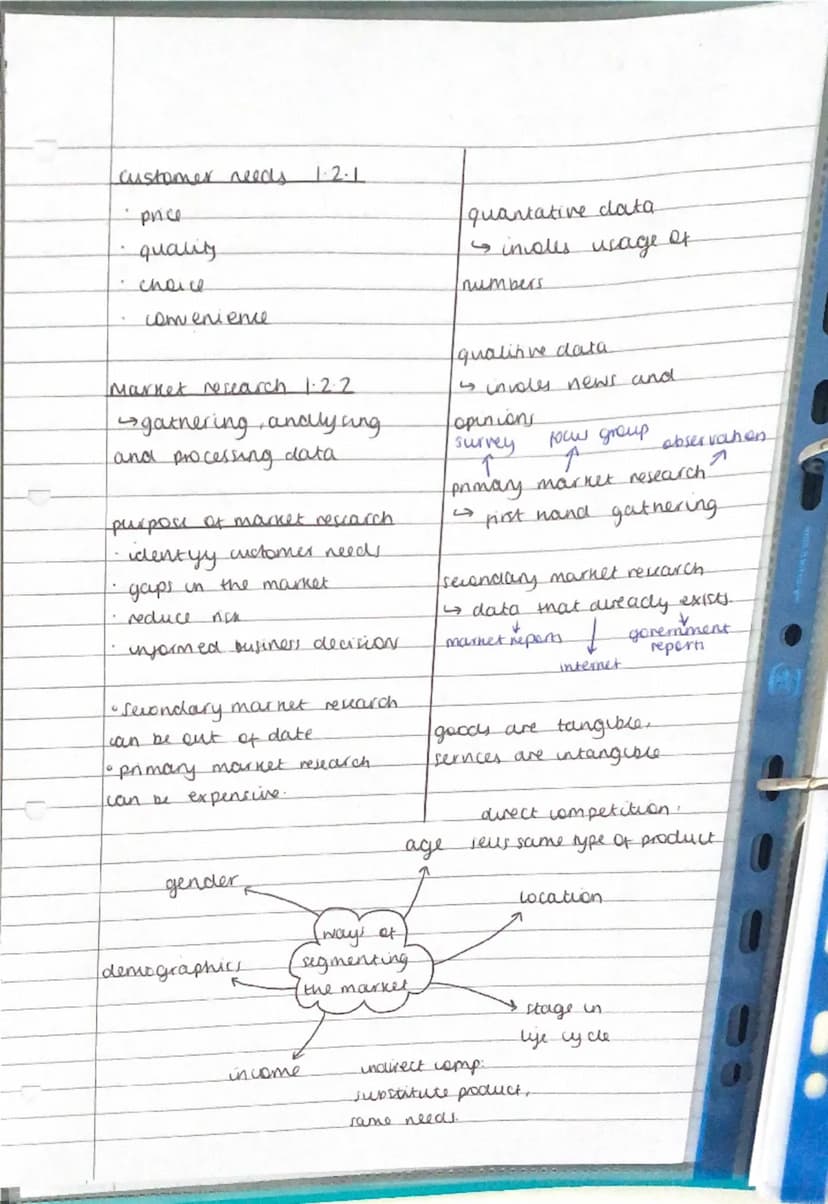 customer needs 1.2.1
· price
· quality
· choice
· convenience
Market research 1.2.2
↳ gathering, analysing
and processing data
purpose of market research
· identify customer needs
· gaps in the market
· reduce risk
· informed business decision
• secondary market research
can be out of date
• primary market research
can be expensive.
quantative data
↳ involes usage of
numbers
qualitive data
↳ involes news and
opinions
survey focus group observation
primary market research
↳ first hand gathering
secondary market research
↳ data that already exists.
market reports
internet
government
reports
goods are tangible,
services are intangible
direct competition.
sells same type of product
age
gender
location
ways of
segmenting
the market
demographics
stage in
life cycle
income
indirect comp:
substitute product,
same needs.